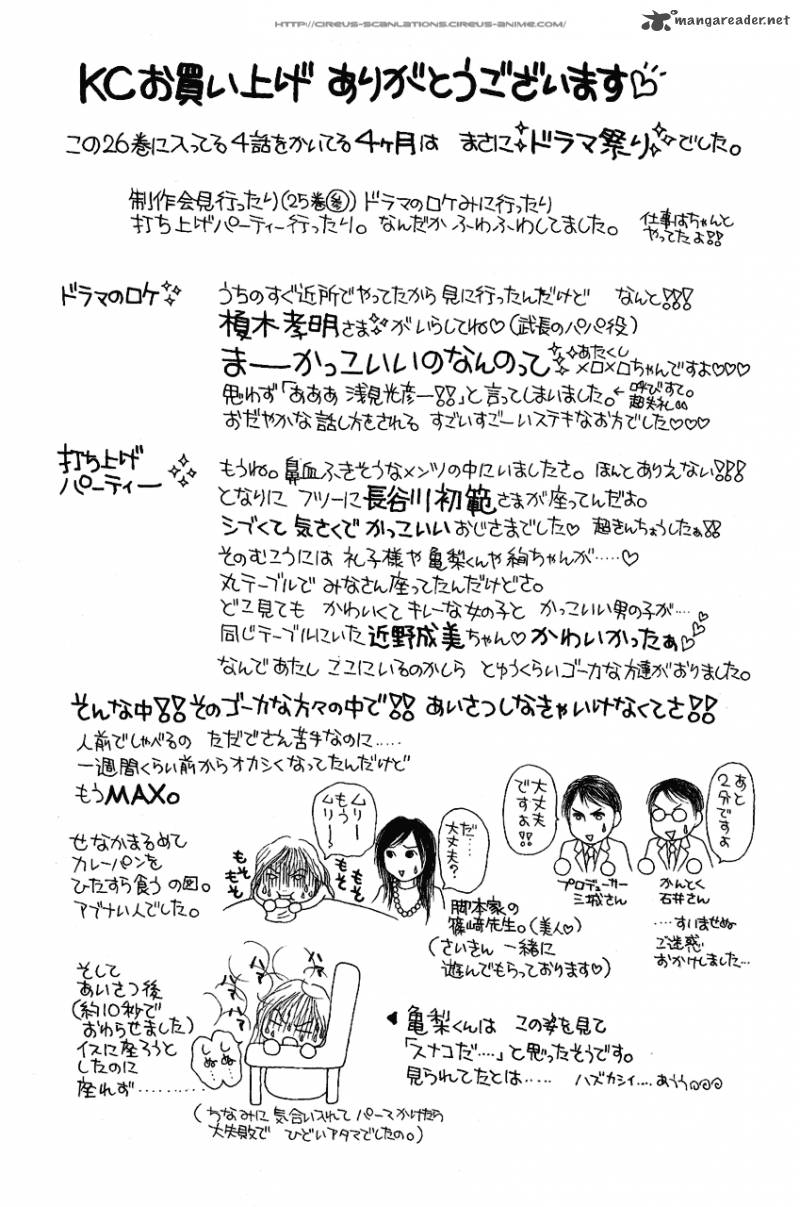 HTTP://CIREUS-SCANLATIONS.CIREUS-ANIME.COM/
mangareader.net
KCお買い上げ ありがとうございます♡
この26巻に入ってる4話をかいてる4ヶ月は まさにドラマ祭りでした。
制作会見行ったり(25巻参)ドラマのロケみに行ったり
打ち上げパーティー行ったり。なんだか ふわふわしてました。
仕事はちゃんと
やってたよ!!
ドラマのロケ
うちのすぐ近所でやってたから 見に行ったんだけど なんと!!!
榎木孝明さまがいらしてね♡(武長のパパ役)
まーーかっこいいのなんのって
あたくし
メロメロちゃんですよ♡♡♡
思わず「あああ 浅見光彦ー!!」と言ってしまいました。←呼びすて。
超失礼
おだやかな話し方をされる すごいすごーいステキなお方でした♡♡♡
打ち上げ
パーティー
もうね。鼻血ふきそうなメンツの中にいましたさ。ほんとありえない!!!
となりに フツーに長谷川初範さまが座ってんだよ。
シブくて 気さくで かっこいいおじさまでした♡ 超きんちょうしたぁ!!
そのむこうには 礼子様や亀梨くんや絢ちゃんが……♡
丸テーブルで みなさん座ってたんだけどさ。
どこ見ても かわいくて キレーな女の子と かっこいい男の子が…
同じテーブルにいた近野成美ちゃん♡かわいかったぁ♡
なんであたし ここにいるのかしら とゆうくらいゴーカな方達がおりました。
そんな中!!そのゴーカな方々の中で!! あいさつしなきゃいけなくてさ!!
人前でしゃべるの ただでさえ苦手なのに……
一週間くらい前からオカシくなってたんだけど
もうMAX。
せなかまるめて
カレーパンを
ひたすら食う の図。
アブナい人でした。
もそ
もそ
ムリー
もう
ムリー
もそ
もそ
だ…
大丈夫?
脚本家の
篠﨑先生。(美人♡)
(さいきん 一緒に
遊んでもらっております♡)
大丈夫
ですよ!!
プロデューサー
三城さん
あと
2分ですよ
かんとく
石井さん
…すいませぬ
ご迷惑
おかけしました…
そして
あいさつ後
(約10秒で
おわらせました)
イスに座ろうと
したのに
座れず………
ハァ
ハァ
ハァ
しぬ
しぬ…
(ちなみに 気合い入れて パーマかけたら
大失敗で ひどいアタマでしたの。)
亀梨くんは この姿を見て
「スナコだ…」と思ったそうです。
見られてたとは…… ハズカシイ…あうう